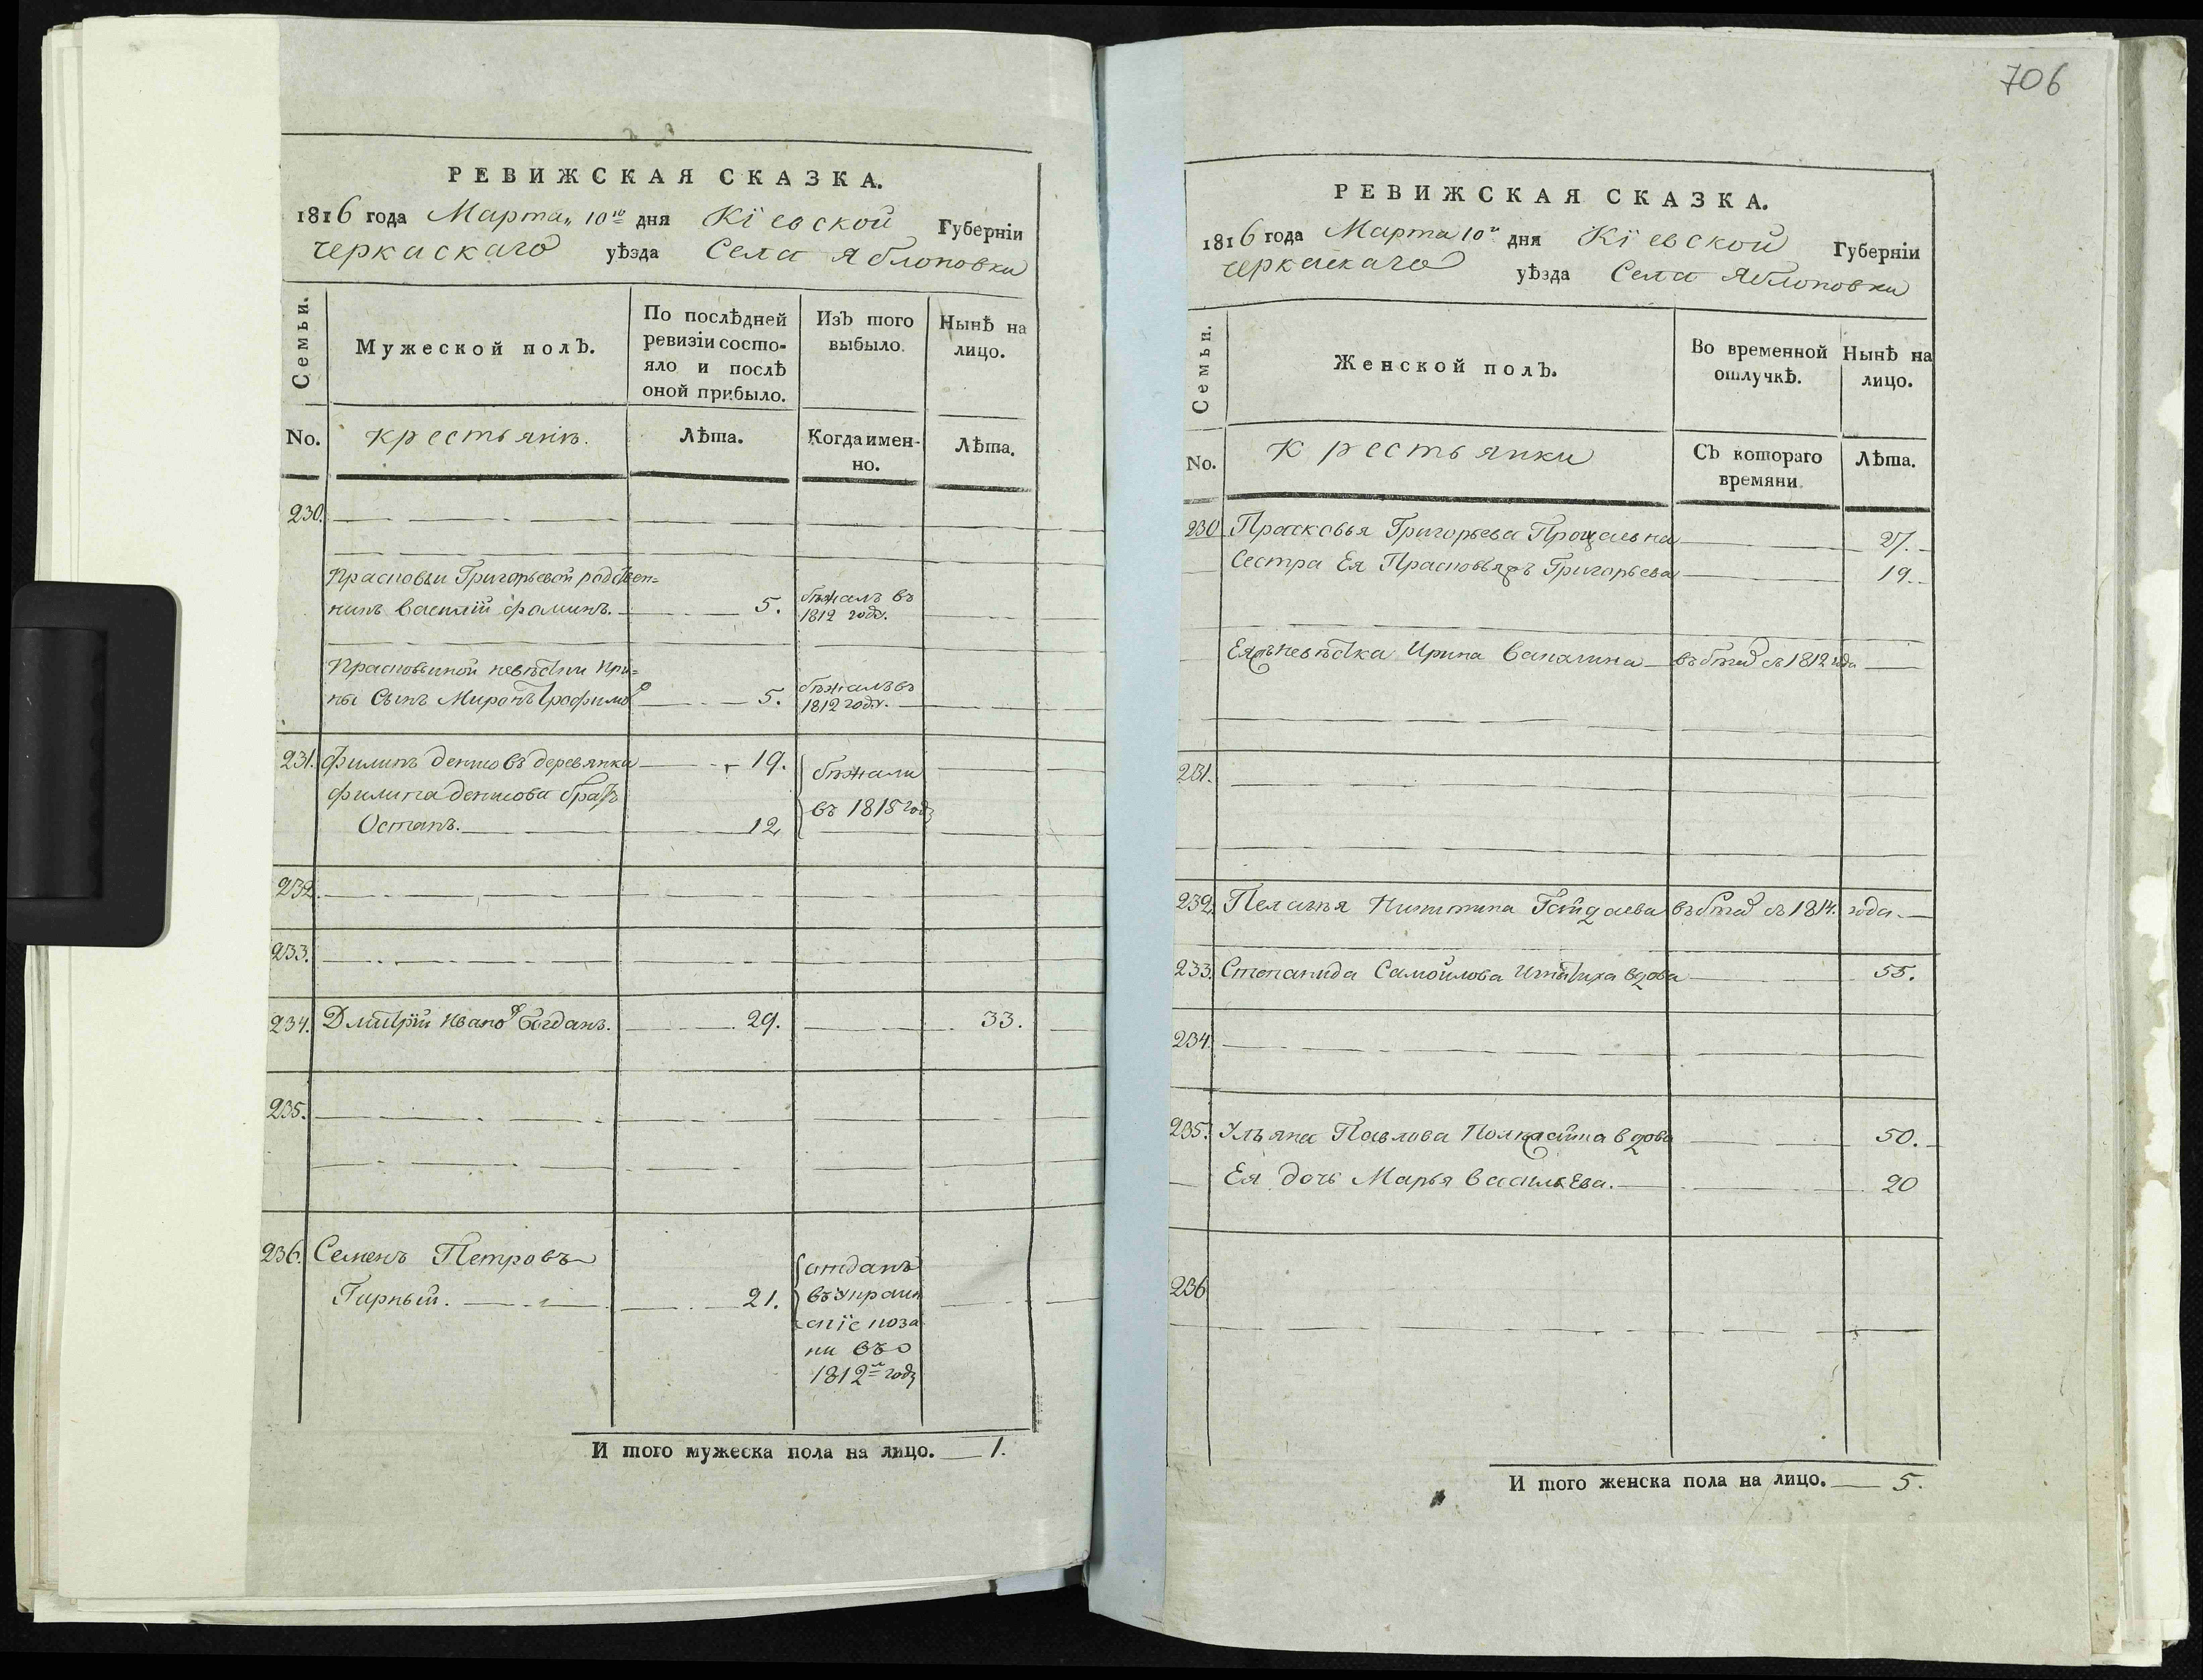 РЕВИЖСКАЯ СКАЗКА.
1816 года Марта 10го дня Кіевской Губерніи
Черкаскаго уѣзда Села Яблоновки
Семьи.
Мужеской полъ.
По послѣдней ревизіи состояло и послѣ оной прибыло.
Изъ того выбыло.
Нынѣ на лицо.
No.
крестьянъ.
Лѣта.
Когда именно.
Лѣта.
230.
Прасковьи Григорьевой родствен=
никъ Василій Фоминъ. 5. бѣжалъ въ 1812 году.
Прасковьиной невѣстки Ири=
ны Сынъ Миронъ Трофимо 5. бѣжалъ въ 1812 году.
231. Филипъ Денисовъ деревянка 19. бѣжали
Филипа Денисова братъ въ 1815 году
Остапъ. 12
232.
233.
234. Дмитрій Ивановъ Богданъ. 29. 33.
235.
236. Семенъ Петровъ отданъ
Гирный. 21. въ Украин
скіе коза
ки въ
1812м году
И того мужеска пола на лицо. 1.
706
РЕВИЖСКАЯ СКАЗКА.
1816 года Марта 10го дня Кіевской Губерніи
Черкаскаго уѣзда Села Яблоновки
Семьи.
Женской полъ.
Во временной отлучкѣ.
Нынѣ на лицо.
No.
Крестьянки
Съ котораго времяни.
Лѣта.
230 Прасковья Григорьева 27.
Сестра Ея Прасковья Григорьева 19.
невѣстка Ирина въ с 1812 года
231.
232. Пелагья Никитина въ с 1814. года.
233. Степанида Самойлова вдова 55.
234.
235. Ульяна Павлова вдова 50.
Ея дочь Марья Васильева. 20
236
И того женска пола на лицо. 5.